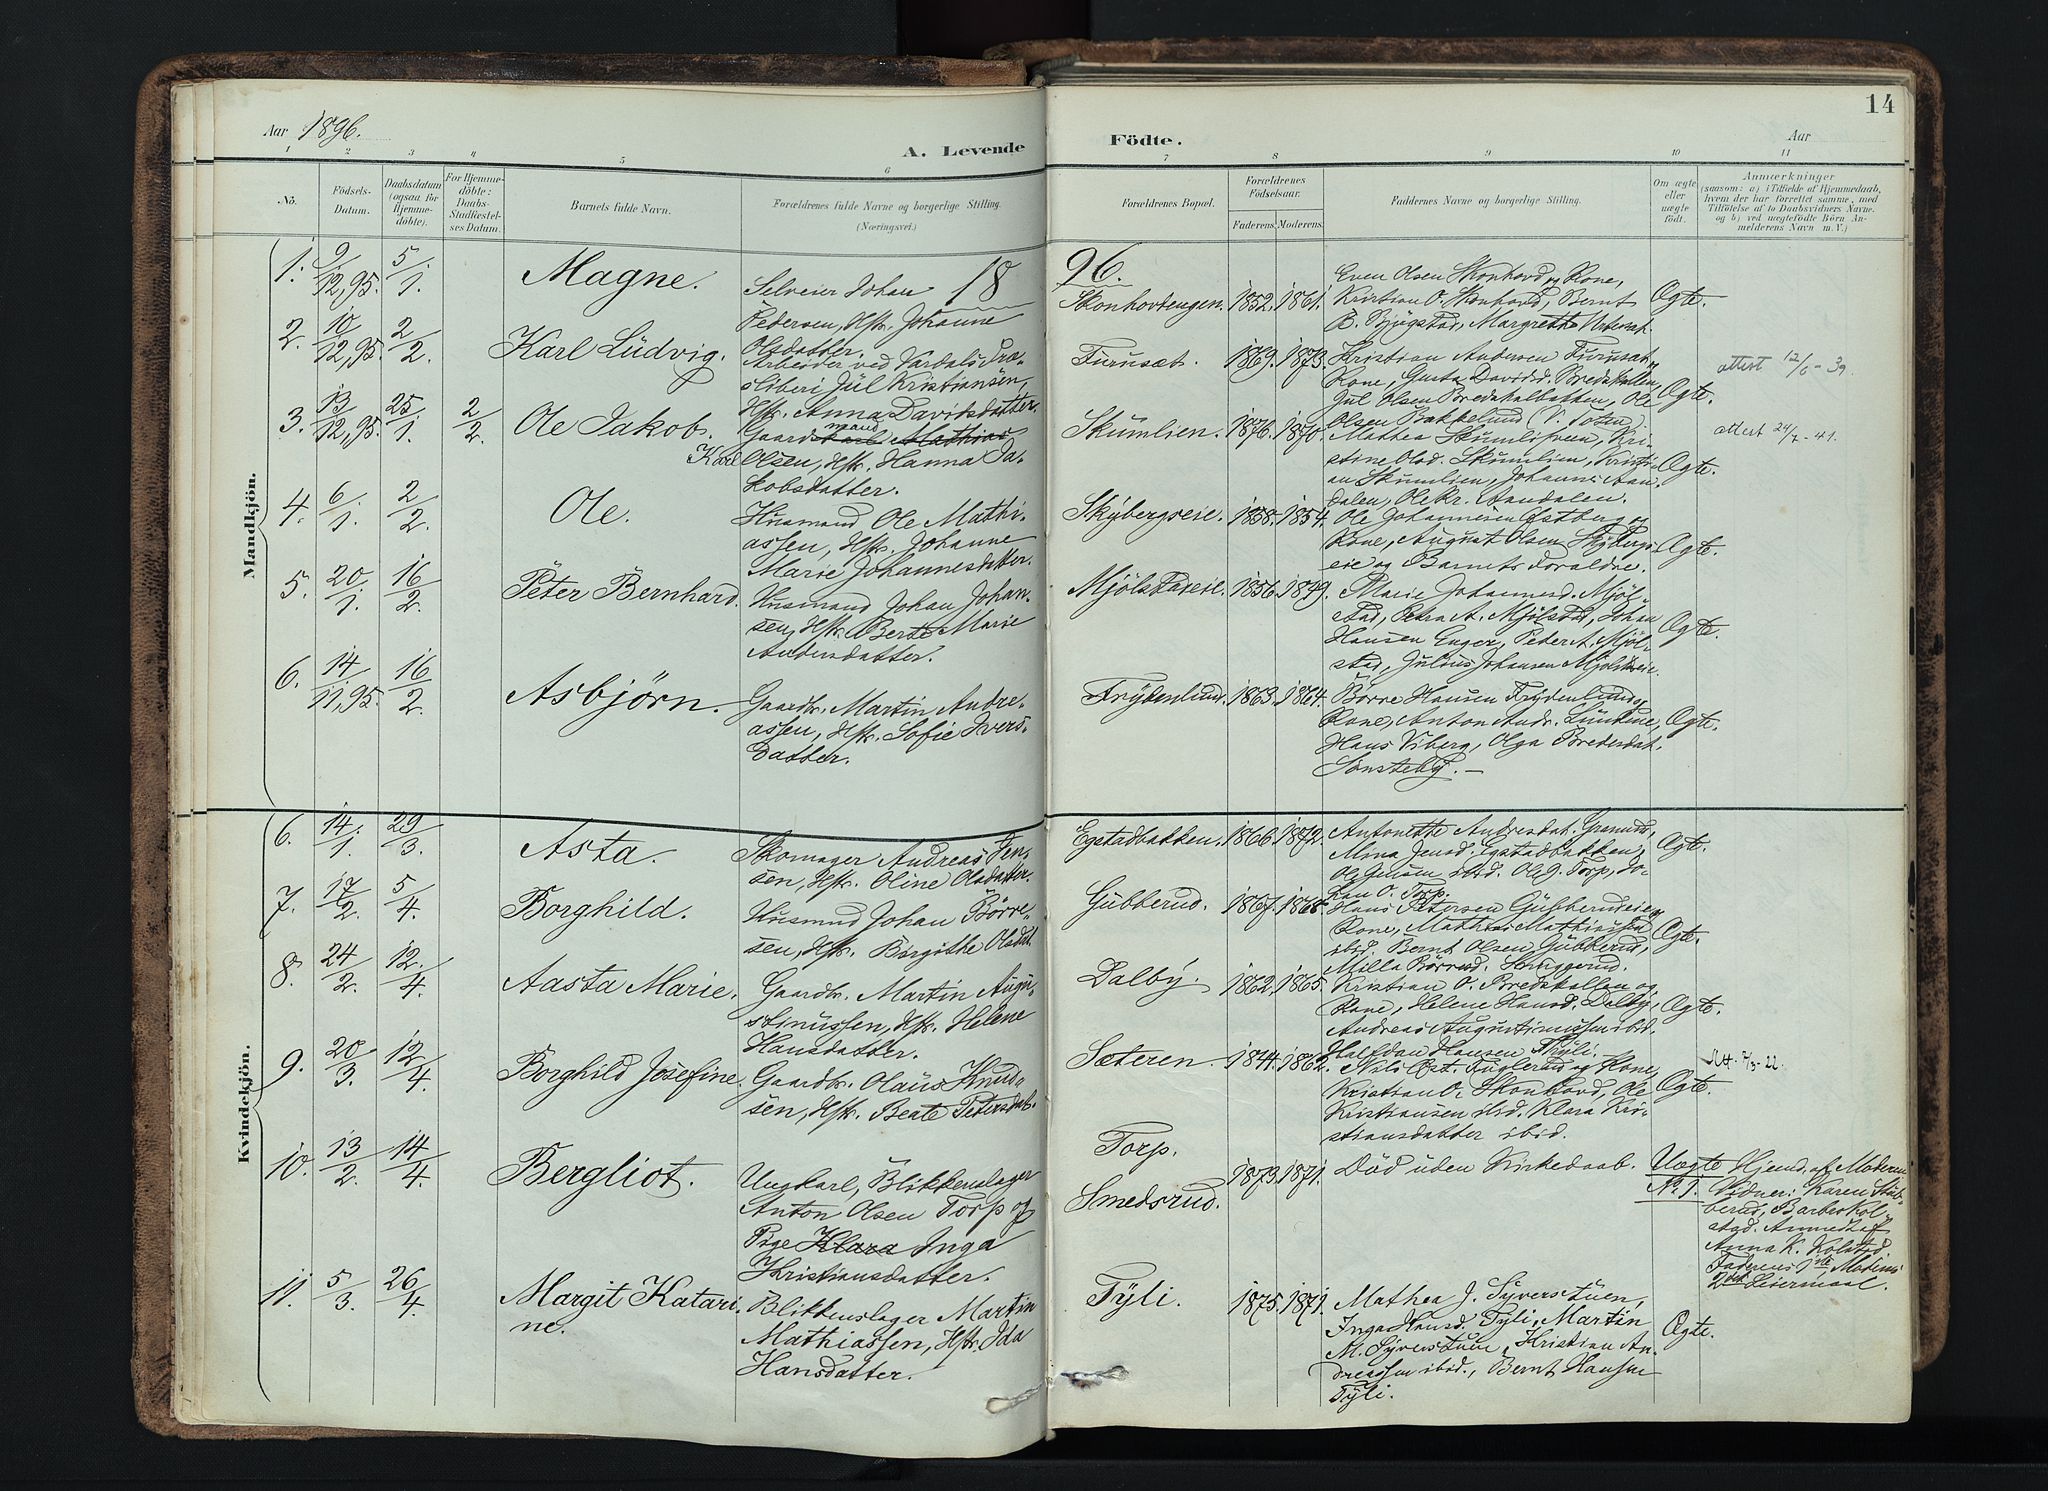 Aar 1896.
A. Levende
Födte.
Aar
14
1 2 3 4 5 6 7 8 9 10 11
No.
Födsels-
Datum.
Daabsdatum
(ogsaa for
Hjemme-
döbte).
For Hjemme-
döbte:
Daabs-
Stadfæstel-
ses Datum.
Barnets fulde Navn.
Forældrenes fulde Navne og borgerlige Stilling.
(Næringsvei.)
Forældrenes Bopæl.
Forældrenes
Födselsaar.
Faderens. Moderens.
Faddernes Navne og borgerlige Stilling.
Om ægte
eller
uægte
födt.
Anmærkninger
(saasom: a) i Tilfælde af Hjemmedaab,
hvem der har forrettet samme, med
Tilföielse af to Daabsvidners Navne,
og b) ved uægtefödte Börn An-
melderens Navn m. V.)
Mandkjön.
1896.
1. 9/12,95. 5/1. Magne.
Selveier Johan
Pedersen, Hstr. Johanne
Olsdatter.
Skonhovtengen. 1852. 1861.
Even Olsen Skonhovd og Kone,
Kristian O. Skonhovd, Bernt
B. Bjugstad, Margrethe
Ægte.
2. 10/12,95. 2/2. Karl Ludvig.
Arbeider ved Vardals Træ-
sliberi Jul Kristiansen,
Hstr. Anna Davidsdatter.
Furusæt. 1869. 1873.
Kristian Andersen Furusæt og
Kone, Gusta Davidsd. Bredskallen,
Jul Olsen Bredskalbakken, Ole
Olsen Bakkelund (V. Toten)
Ægte.
attest 12/6-39.
3. 13/12,95. 25/1. 2/2. Ole Jakob.
Gaardmand Karl Mathias
Karl Olsen, Hstr. Hanna Ja-
kobsdatter.
Skumlien. 1876. 1870.
Mathea Skumlisveen, Kri-
stine Olsd. Skumlien, Kristi-
an Skumlien, Johannes Aan-
dalen, Ole Kr. Aandalen.
Ægte.
attest 24/7-41.
4. 6/1. 2/2. Ole.
Husmand Ole Mathi-
assen, Hstr. Johanne
Marie Johannesdatter.
Skybergseie. 1858. 1854.
Ole Johannesen Østberg og
Kone, August Olsen Skybergs-
eie og Barnets Foraldre.
Ægte.
5. 20/1. 16/2. Peter Bernhard.
Husmand Johan Johan-
sen, Hstr. Berte Marie
Andersdatter.
Mjölstadeie. 1856. 1849.
Marie Johannesd. Mjöl-
stad, Petra A. Mjölstad, Johan
Hansen Enger, Peder A. Mjöl-
stad, Julius Johansen Mjölstadeie.
Ægte.
6. 14/11,95. 16/2. Asbjörn.
Gaardbr. Martin Andre-
assen, Hstr. Sofie Ivers-
datter.
Frydenlund. 1863. 1864.
Börre Hansen Frydenlund og
Kone, Anton Andr.
Hans Viberg, Olga Bredesdat.
Sönsteby. —
Ægte.
Kvindekjön.
6. 14/1. 29/3. Asta.
Skomager Andreas Jen-
sen, Hstr. Oline Olsdatter.
Egstadbakken. 1866. 1872.
Antonette Andresdat.
Alma Jensd. Egstadbakken,
Ole Jensen ibid. Ole J. Torp, Jo-
han O. Torp.
Ægte.
7. 17/2. 5/4. Borghild.
Husmand Johan Börre-
sen, Hstr. Birgitte Olsdat.
Gubberud. 1867. 1868.
Hans Petersen Gubberudeie og
Kone, Mathias Mathiassen
ibid. Bernt Olsen Gubberud,
Milla Börresd.
Ægte.
8. 24/2. 12/4. Aasta Marie.
Gaardbr. Martin Augu-
stinussen, Hstr. Helene
Hansdatter.
Dalby. 1862. 1865.
Kristian O. Bredskallen og
Kone, Helene Hansd. Dalby,
Andreas Augustinussen ibid.
Halfdan Hansen Thyli.
Ægte.
9. 20/3. 12/4. Borghild Josefine.
Gaardbr. Olaus Knud-
sen, Hstr. Beate Petersdat.
Sæteren. 1844. 1862.
Nils Fuglerud og Kone,
Kristian O. Skonhovd, Ole
Kristiansen ibid. Klara Kri-
stiansdatter ibid.
Ægte.
Att. 7/3-22.
10. 13/2. 14/4. Bergliot.
Ungkarl, Blikkenslager
Anton Olsen Torp og
Pige Klara Inga
Kristiansdatter.
Torp.
Smedsrud.
1873. 1871.
Död uden Kirkedaab.
Uægte
No 1.
Hjemd. af Moderen
Vidner: Karen
Barbro Kol-
stad. Anmeldt af
Anna K. Kolstad.
Faderens 1ste Moderens
2det Leiermaal.
11. 5/3. 26/4. Margit Katari-
ne.
Blikkenslager Martin
Mathiassen, Hstr. Ida
Hansdatter.
Tyli. 1875. 1871.
Mathea J. Syverstuen,
Inga Hansd. Tyli, Martin
M. Syverstuen, Kristian An-
dreassen ibid., Bernt Hansen
Tyli.
Ægte.